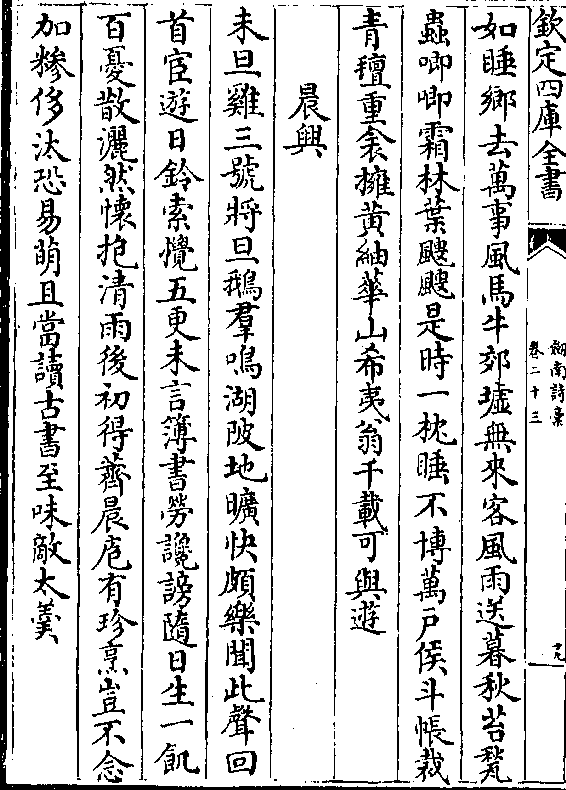 欽定四庫全書
劒南詩稾
卷二十三
十九
如睡鄉去萬事風馬牛郊墟無來客風雨送暮秋苔甃
蟲唧唧霜林葉颼颼是時一枕睡不博萬戶侯斗帳裁
青氊重衾擁黃紬華山希夷翁千載可與遊
晨興
未旦雞三號將旦鵝羣鳴湖陂地曠快頗樂聞此聲回
首宦遊日鈴索攪五更未言簿書勞讒謗隨日生一飢
百憂散灑然懷抱清雨後初得薺晨庖有珍烹豈不念
加糝侈汰恐易萌且當讀古書至味敵太羹